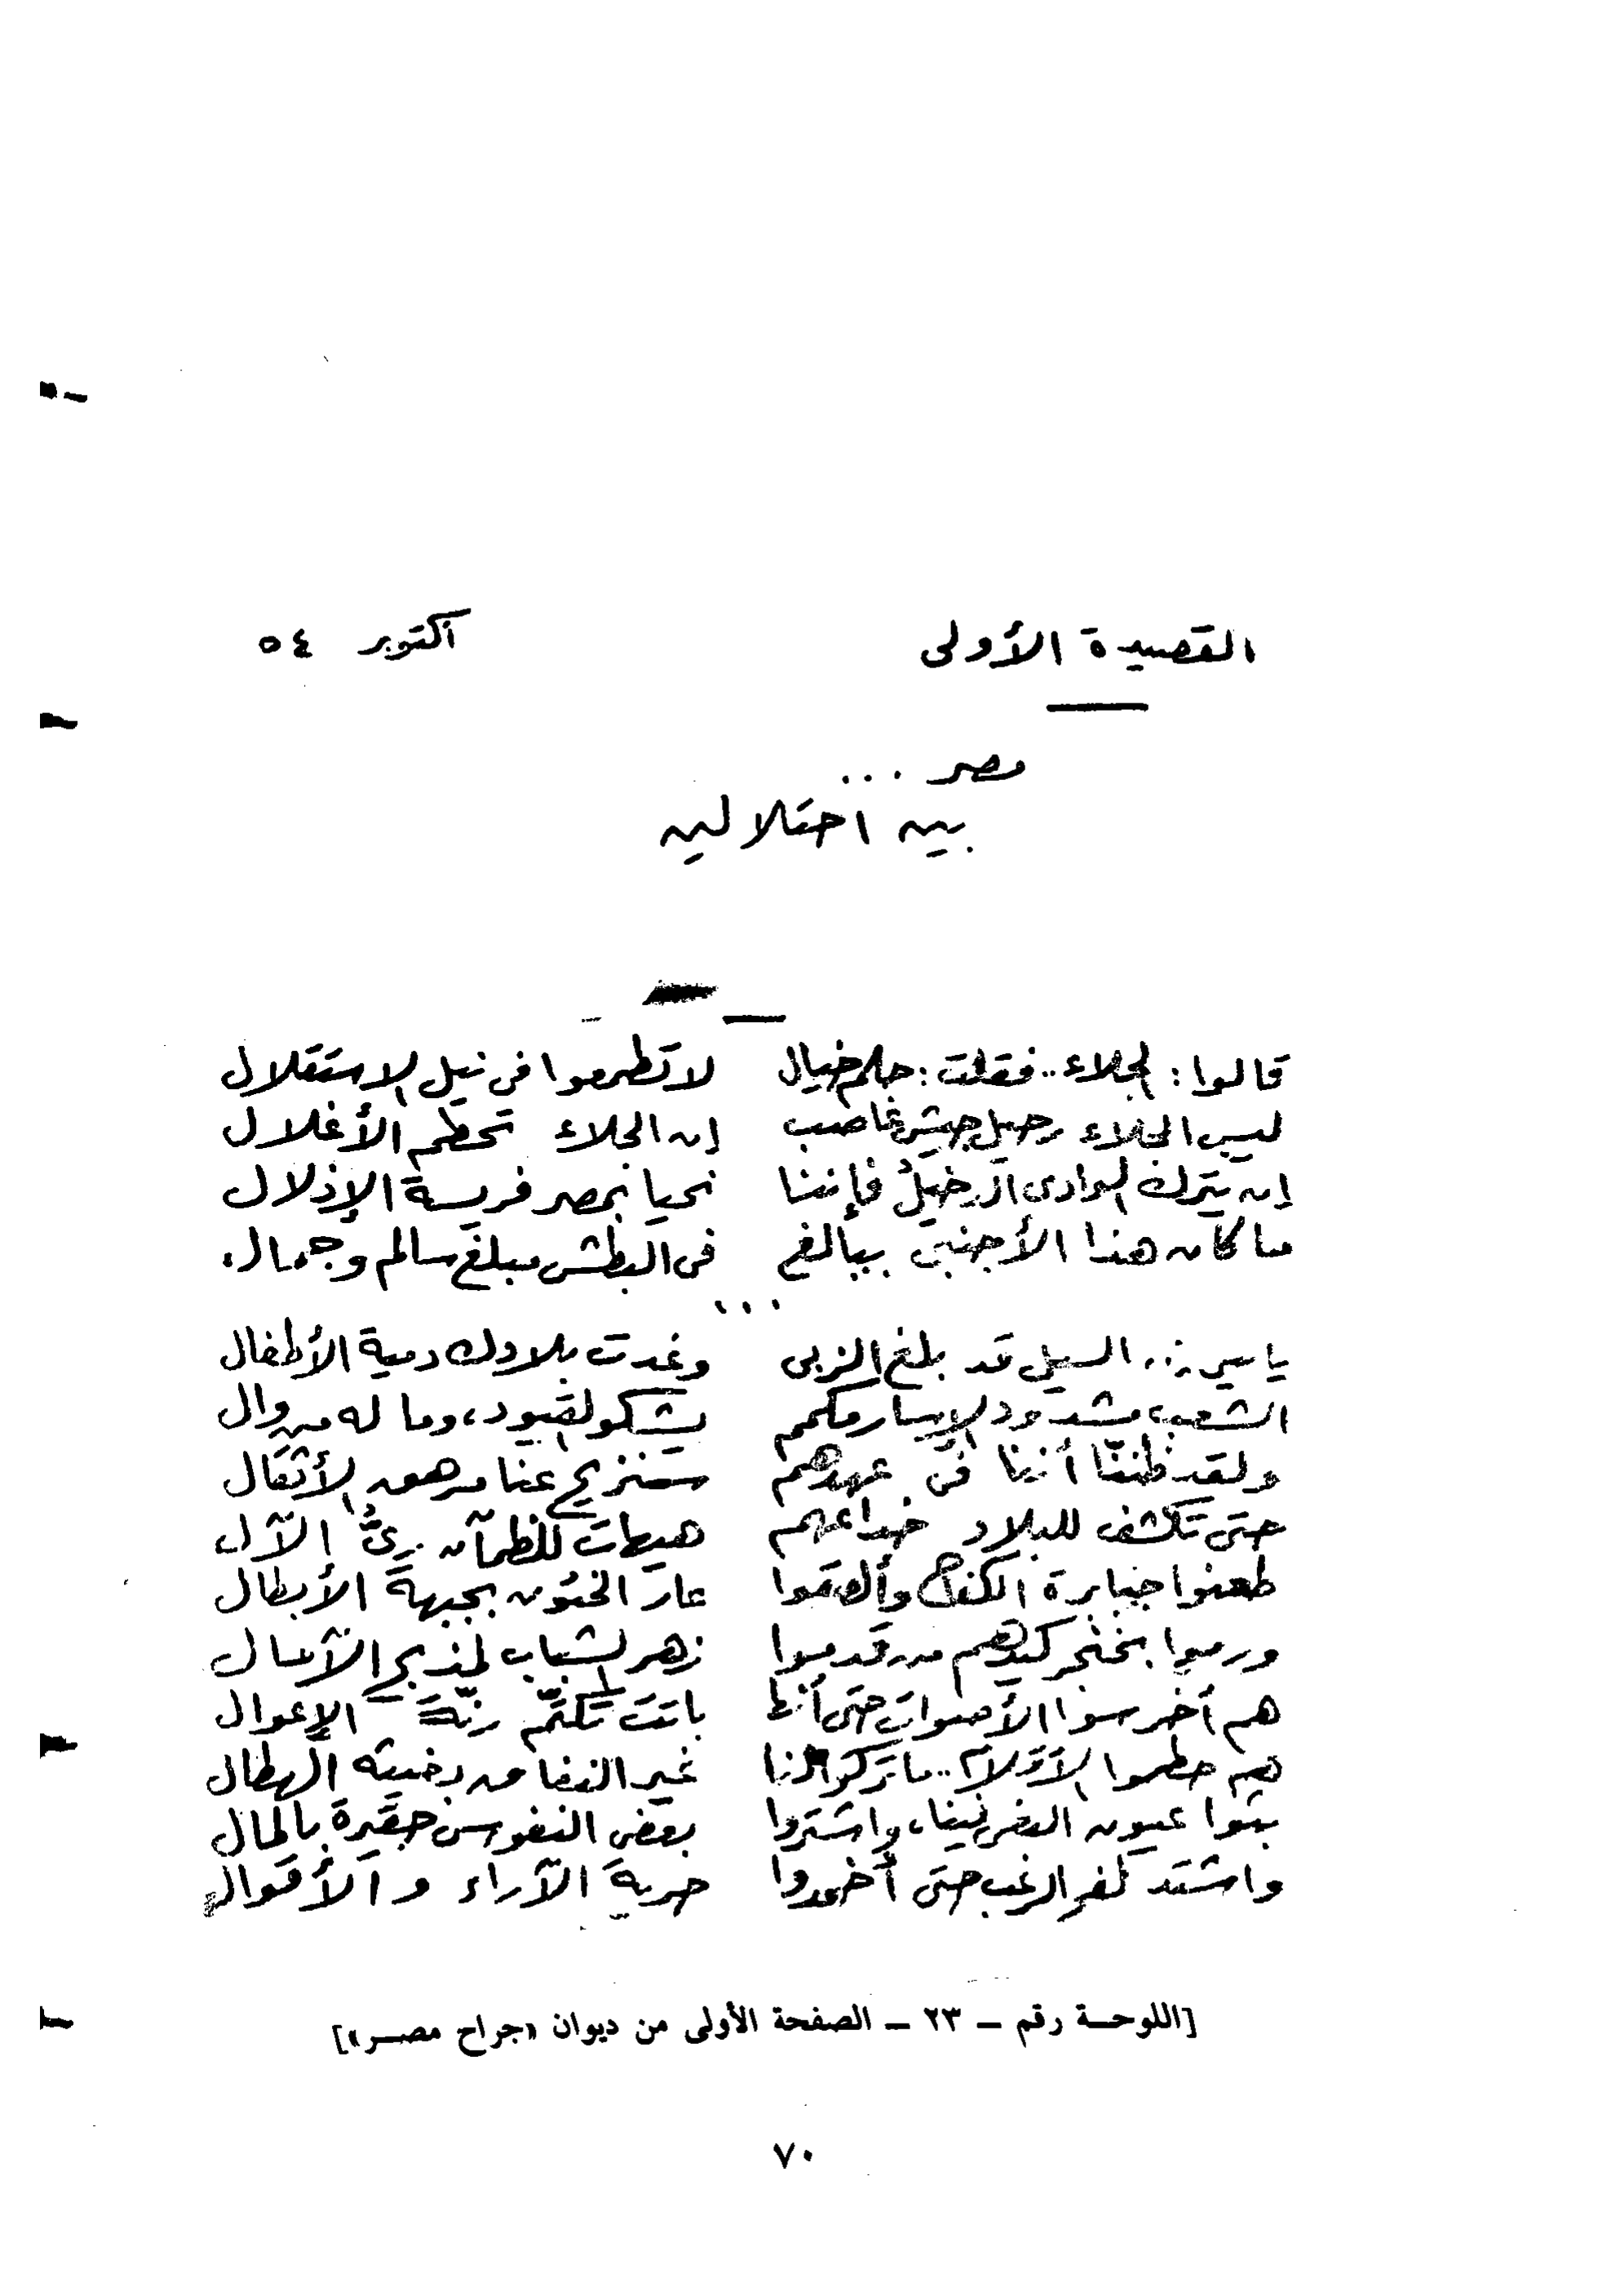 القصيدة الأولى أكتوبر ٥٤
مصر ...
بين احتلالين
قالوا: الجلاء.. فقلت: حلم خيال لا تطمعوا فى نيل الاستقلال
ليس الجلاء رحيل جيش غاصب إن الجلاء تحطم الأغلال
إن يترك الوادى الدخيلُ فإننا نحيا بمصر فريسة الإذلال
ما كان هذا الأجنبى ببالغ فى البطش مبلغ سالم وجمال
...
يا سيدى.. السيل قد بلغ الزبى وغدت بلادك دمية الأطفال
الشعب مشدود الإسار مكمم يشكو القيود، وما له من وال
ولقد ظننّا أننا فى عهدهم سنزيح عنا مرهق الأثقال
حتى تكشف للبلاد خداعهم هيهات للظمآن رىُّ الآل
طعنوا جبابرة الكفاح وألصقوا عار الخئون بجبهة الأبطال
ورموا بخنجر كيدهم من قدموا زهر الشباب لمذبح الآمال
هم أخرسوا الأصوات حتى أنها باتت تكتّم رنّة الإعوال
هم حطموا الأقلام.. ما تركوا لنا غير النفاق بغيثه الهطال
بثوا عيون الغدر فينا، واشتروا بعض النفوس حقيرة بالمال
واشتد لفح الرعب حتى أخمدوا حرية الآراء والأقوال
[اللوحة رقم – ٢٣ – الصفحة الأولى من ديوان «جراح مصر»]
٧٠